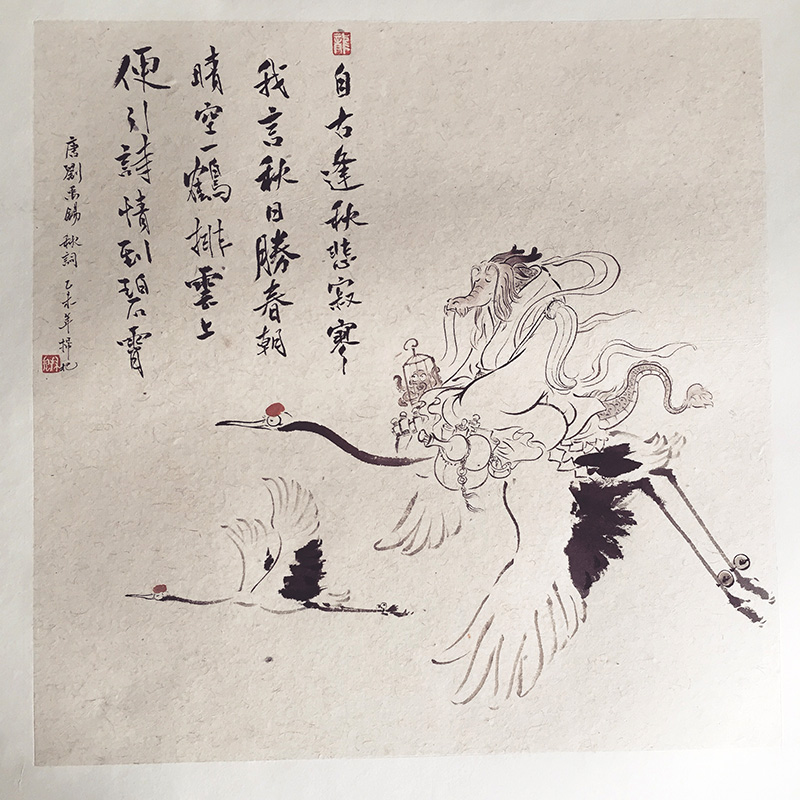 龍
自古逢秋悲寂寥
我言秋日勝春朝
晴空一鶴排雲上
便引詩情到碧霄
唐劉禹錫秋詞乙未年